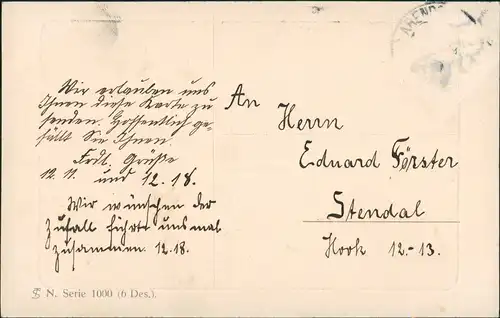 Wir erlauben uns
Ihnen diese Karte zu
senden. Hoffentlich ge-
fällt Sie Ihnen.
Frdl. Grüße
12.11. und 12.18.
Wir wünschen der
Zufall führt uns mal
zusammen. 12.18.
An
Herrn
Eduard Förster
Stendal
12.-13.
N. Serie 1000 (6 Des.).
AREND